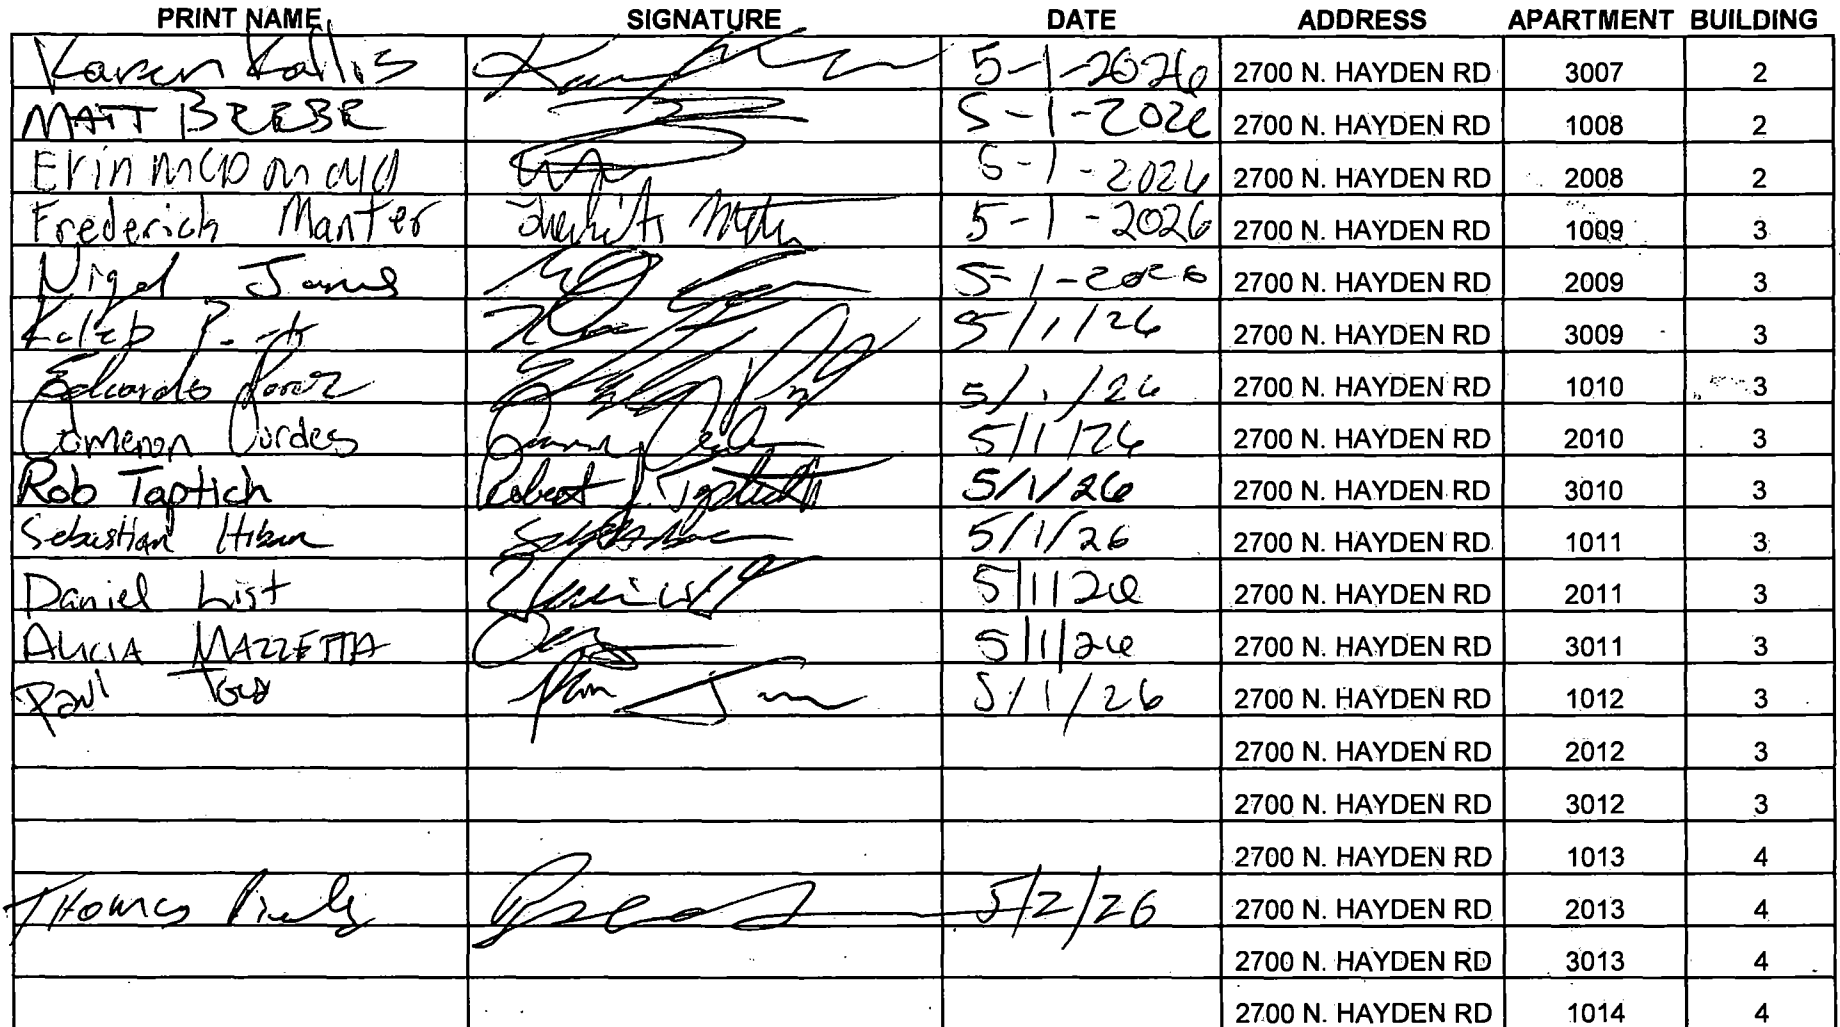 PRINT NAME SIGNATURE DATE ADDRESS APARTMENT BUILDING
Karen Kallis 5-1-2026 2700 N. HAYDEN RD 3007 2
MATT BEEBE 5-1-2026 2700 N. HAYDEN RD 1008 2
Erin McDonald 5-1-2026 2700 N. HAYDEN RD 2008 2
Frederich Manter 5-1-2026 2700 N. HAYDEN RD 1009 3
Nigel 5-1-2026 2700 N. HAYDEN RD 2009 3
Kaleb 5/1/26 2700 N. HAYDEN RD 3009 3
Eduardo Perez 5/1/26 2700 N. HAYDEN RD 1010 3
Cameron Cordes 5/1/26 2700 N. HAYDEN RD 2010 3
Rob Taptich Robert J. Taptich 5/1/26 2700 N. HAYDEN RD 3010 3
Sebastian 5/1/26 2700 N. HAYDEN RD 1011 3
Daniel List 5/1/26 2700 N. HAYDEN RD 2011 3
ALICIA MAZZETTA 5/1/26 2700 N. HAYDEN RD 3011 3
Paul 5/1/26 2700 N. HAYDEN RD 1012 3
2700 N. HAYDEN RD 2012 3
2700 N. HAYDEN RD 3012 3
2700 N. HAYDEN RD 1013 4
THOMAS 5/2/26 2700 N. HAYDEN RD 2013 4
2700 N. HAYDEN RD 3013 4
2700 N. HAYDEN RD 1014 4